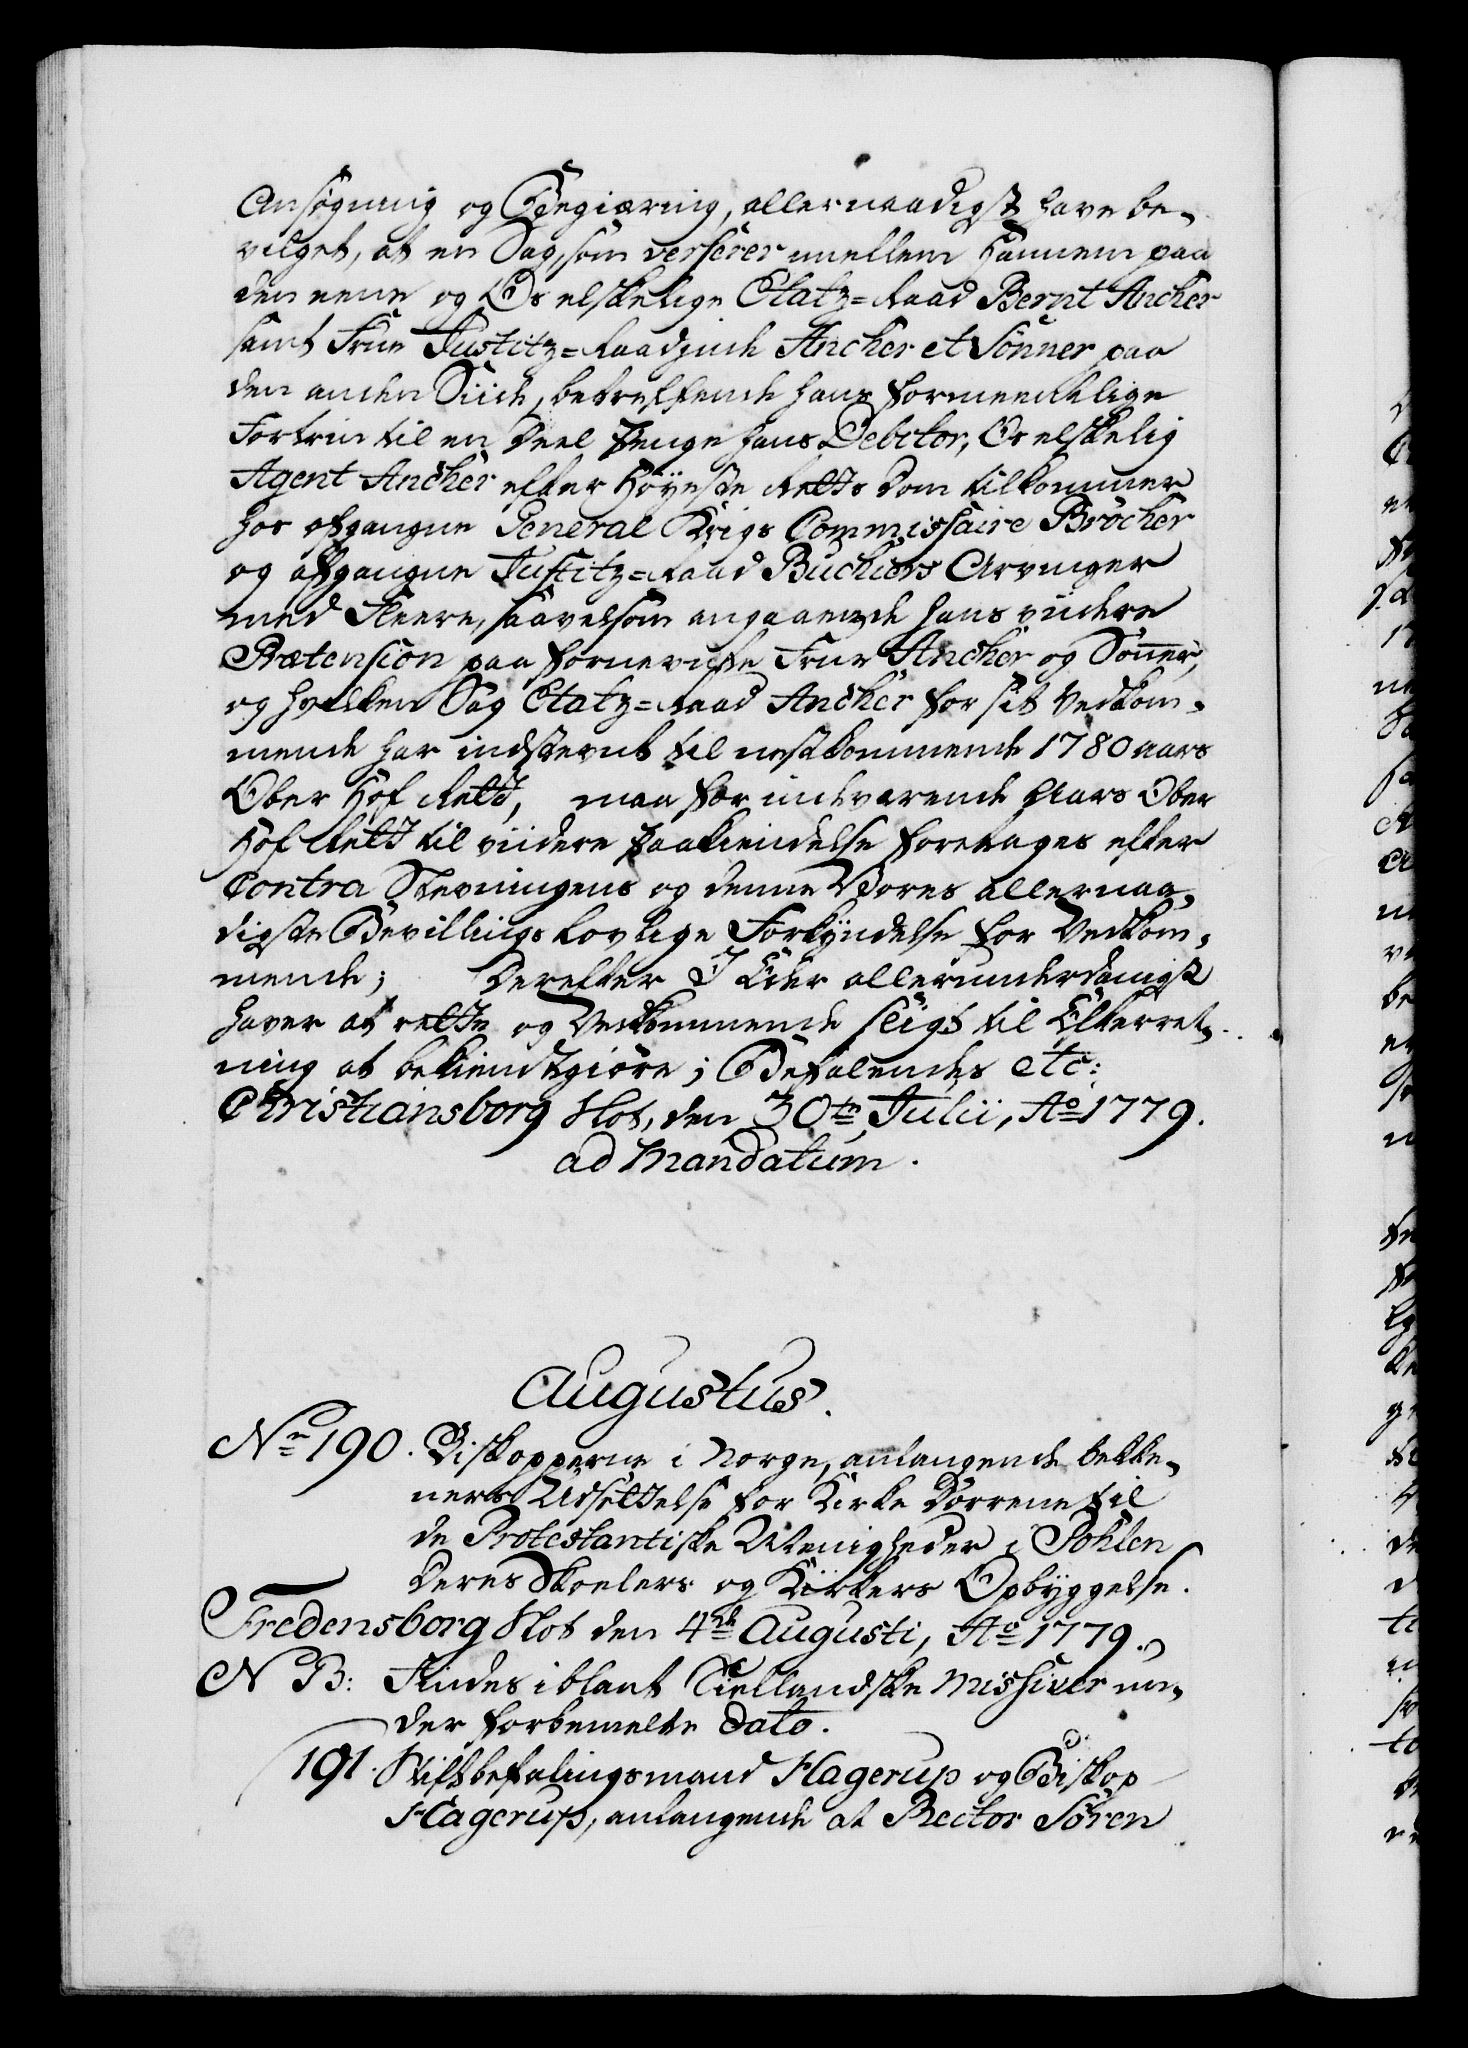 Ansøgning og Begiæring, allernaadigst have be-
vilget, at en Sag, som verserer mellem hannem paa
den eene og Os elskelige Etatz=Raad Bernt Ancher
samt Frue Justitz=Raadinde Ancher et Sönner paa
den anden Siide, betreffende hans formeentlige
Fortrin til en Deel Penge hans Debitor, Os elskelig
Agent Ancher efter Høyeste Retts Dom tilkommer
hos afgangne General Krigs Commissaire Bröcher
og afgangne Justitz=Raad Buchers Arvinger
med Fleere, saavelsom angaaende hans viidere
Prætension paa forneviste Frue Ancher og Sønner,
og hvilken Sag Etatz=Raad Ancher for sit Vedkom-
mende har indstevnt til nestkommende 1780 aars
Ober Hof Rett, maa for indeværende Aars Ober
Hof Rett til viidere Paakiendelse foretages efter
Contra Stevningens og denne Vores allernaa-
digste Bevillings lovlige Forkyndelse for Vedkom-
mende; Derefter I Eder allerunderdanigst
haver at rette og Vedkommende sligt til Efterret-
ning at bekiendtgiøre; Befalendes etc:
Christiansborg Slot, den 30te Julii, Ao 1779.
ad Mandatum.
Augustus.
No 190. Biskopperne i Norge, anlangende bekke-
ners Udsettelse for Kirke Dørrene til
de Protestantiske Menigheder i Pohlen
Deres Skoelers og Kirkers Opbyggelse.
Fredensborg Slot den 4de Augusti, Ao 1779.
N B: Findes iblant Siellandske Missiver un-
der forbemelte Dato.
191. Stiftbefalingsmand Hagerup og Biskop
Hagerup, anlangende at Rector Sören